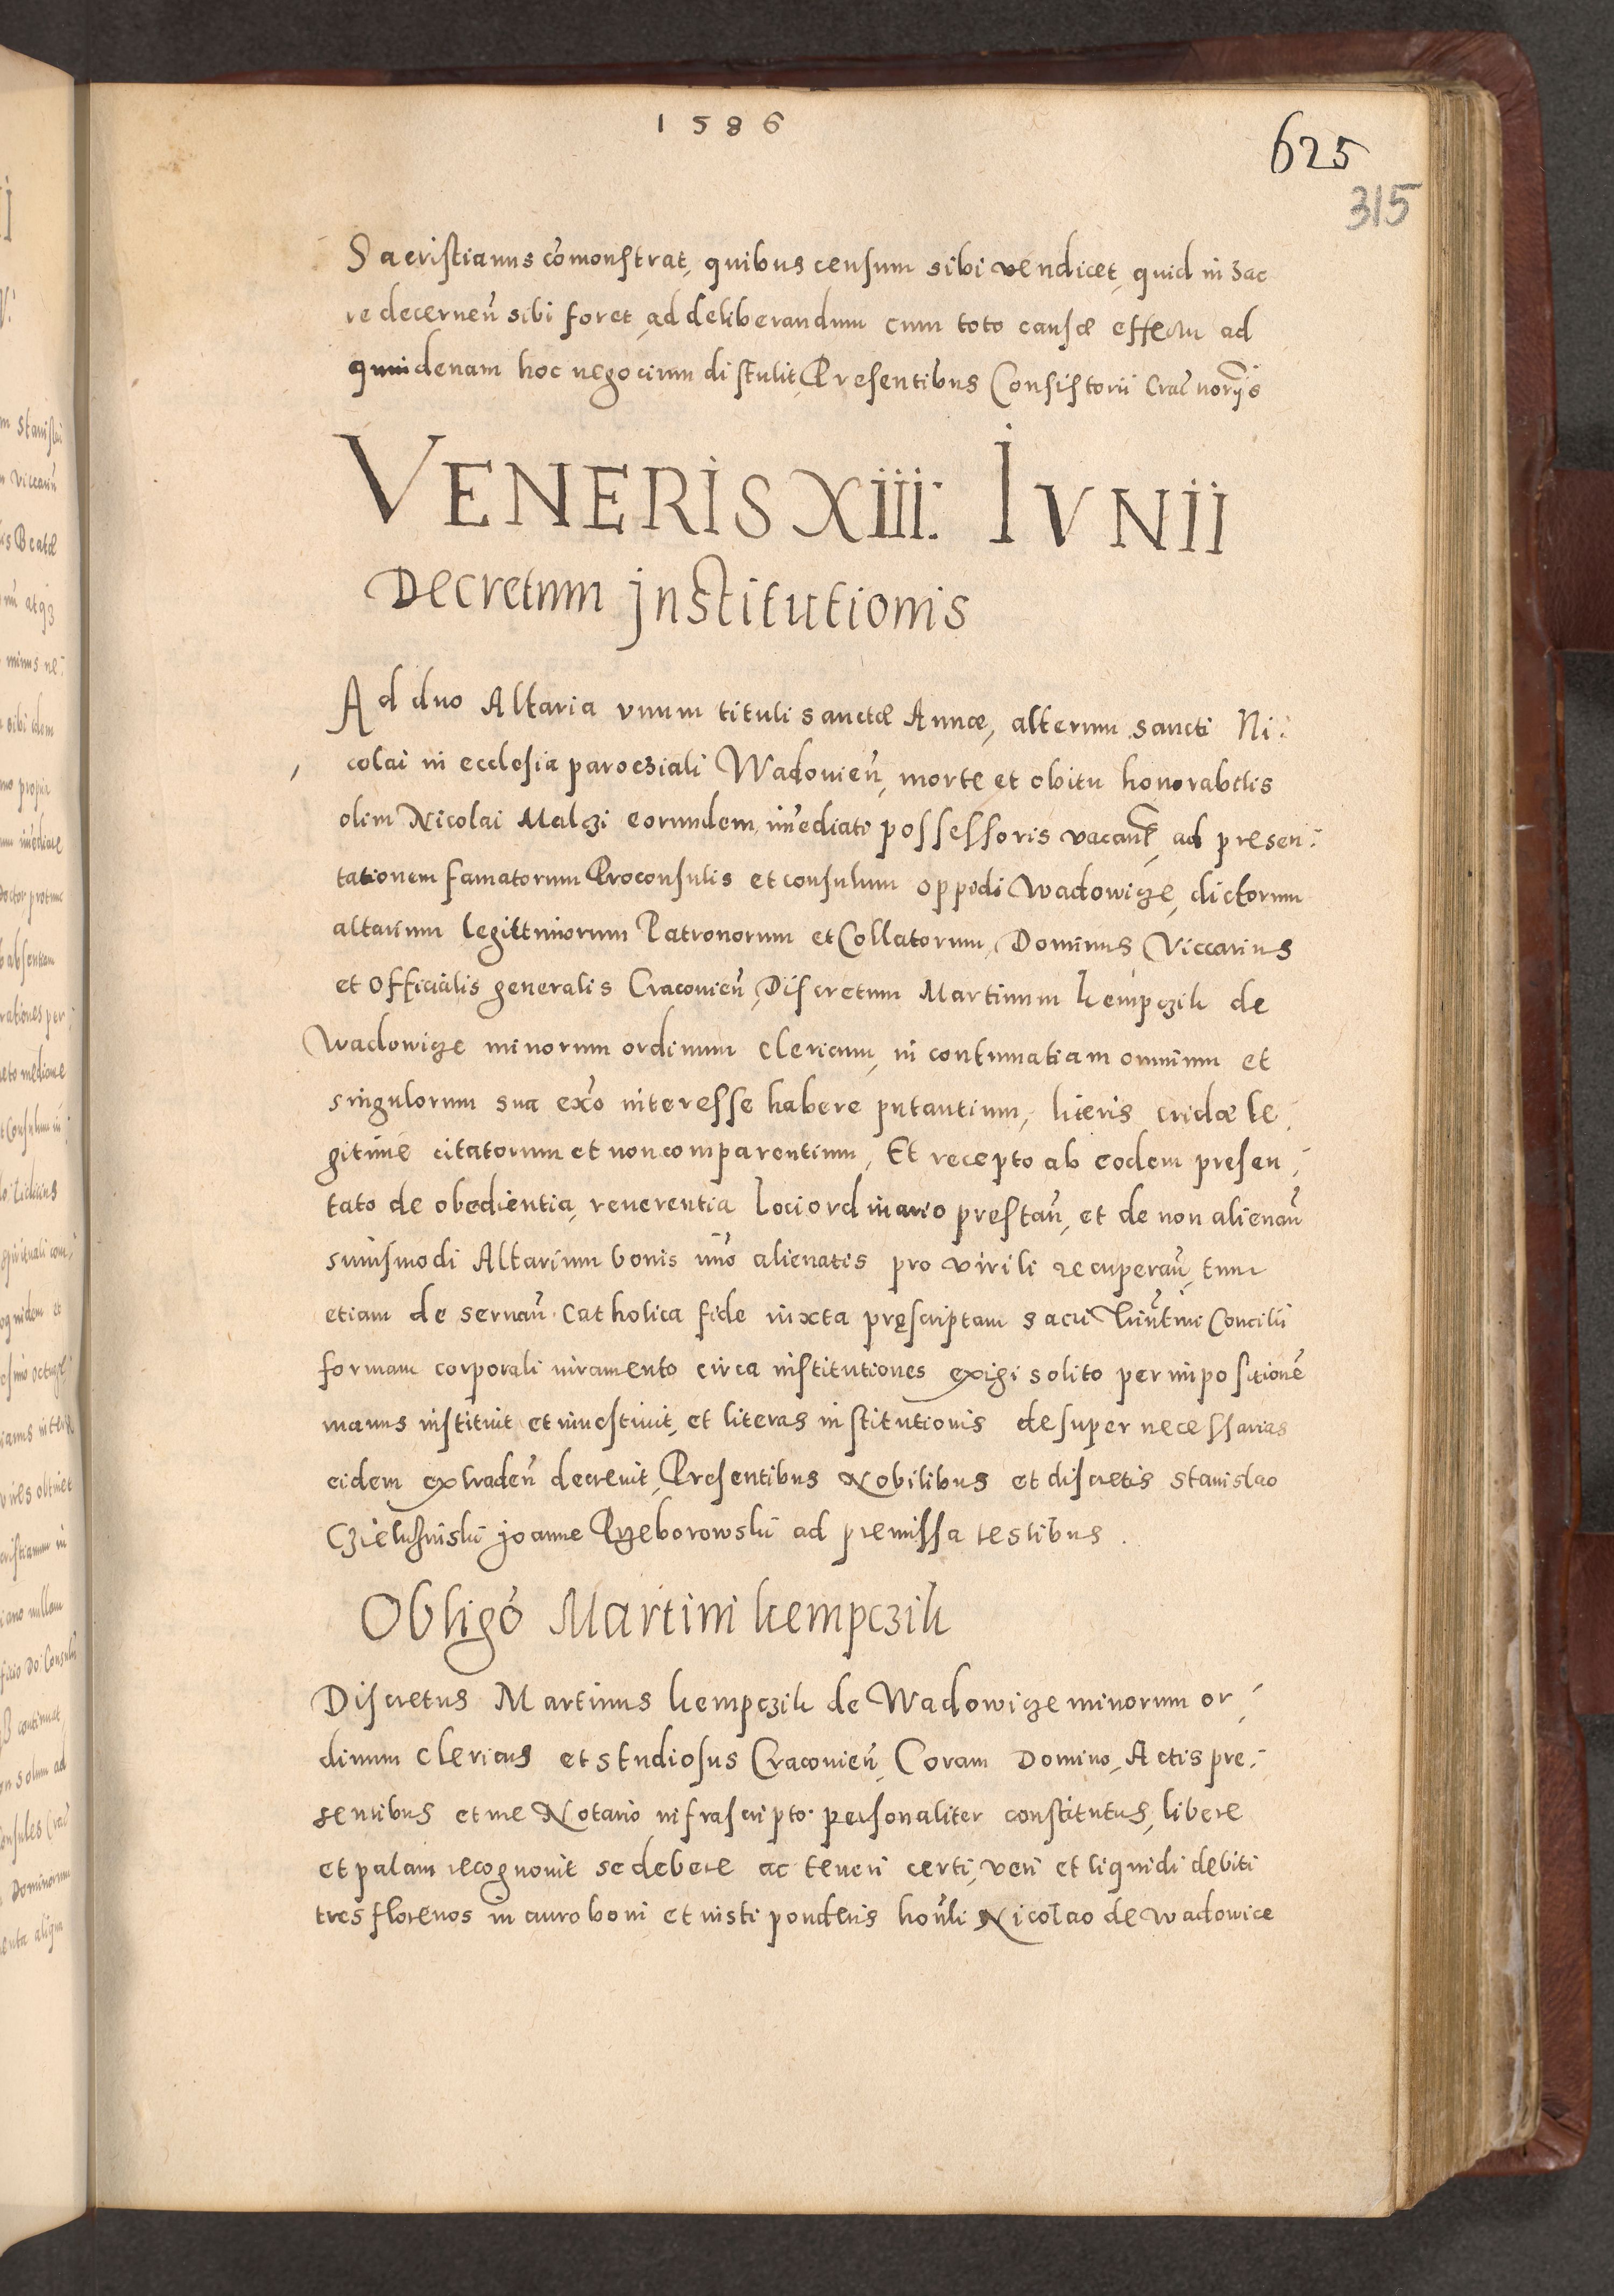 1586
625
315
Sacristianus cõmonstrat, quibus censum sibi vendicet, quid in hac
re decerneñ sibi foret, ad deliberandum cum toto causæ effectu ad
quindenam hoc negocium distulit, Presentibus Consistorii Crac norijs
VENERIS XIII: IVNII
Decretum Institutionis
Ad duo Altaria vnum tituli sanctæ Annæ, alterum sancti Ni:
colai in ecclesia paroeziali Wadovieñ, morte et obitu honorabilis
olim Nicolai Malczi eorundem, im̃ediati possessoris vacañ, ad presen:
tationem famatorum Proconsulis et consulum oppidi Wadowicze, dictorum
altarium legittimorum Patronorum et Collatorum, Dominus Viccarius
et Officialis generalis Cracovieñ, Discretum Martinum Kempczik de
Wadowicze minorum ordinum clericum, in contumatiam omnium et
singulorum sua ex̃o interesse habere putantium, literis cridæ le:
gitime citatorum et non comparentium, Et recepto ab eodem presen:
tato de obedientia, reverentia loci ordinario prestañ, et de non alienañ
suiusmodi Altarium bonis im̃o alienatis pro virili recuperañ, tum
etiam de servañ catholica fide iuxta pręscriptam sacri Trideñtini Concilii
formam corporali iuramento circa institutiones exigi solito per impositionẽ
manus instituit et investiuit, et literas institutionis desuper necessarias
eidem extradeñ decreuit, Presentibus Nobilibus et discretis Stanislao
Joanne Rzeborowski ad premissa testibus.
Obligõ Martini Kempczik
Discretus Martinus Kempczik de Wadowicze minorum or:
dinum clericus et studiosus Cracovieñ, Coram Domino, Actis pre:
sentibus et me Notario infrascripto personaliter constitutus, libere
et palam recognovit se debere ac teneri certi, veri et liquidi debiti
tres florenos in auro boni et iusti ponderis hoñli Nicolao de Wadowice